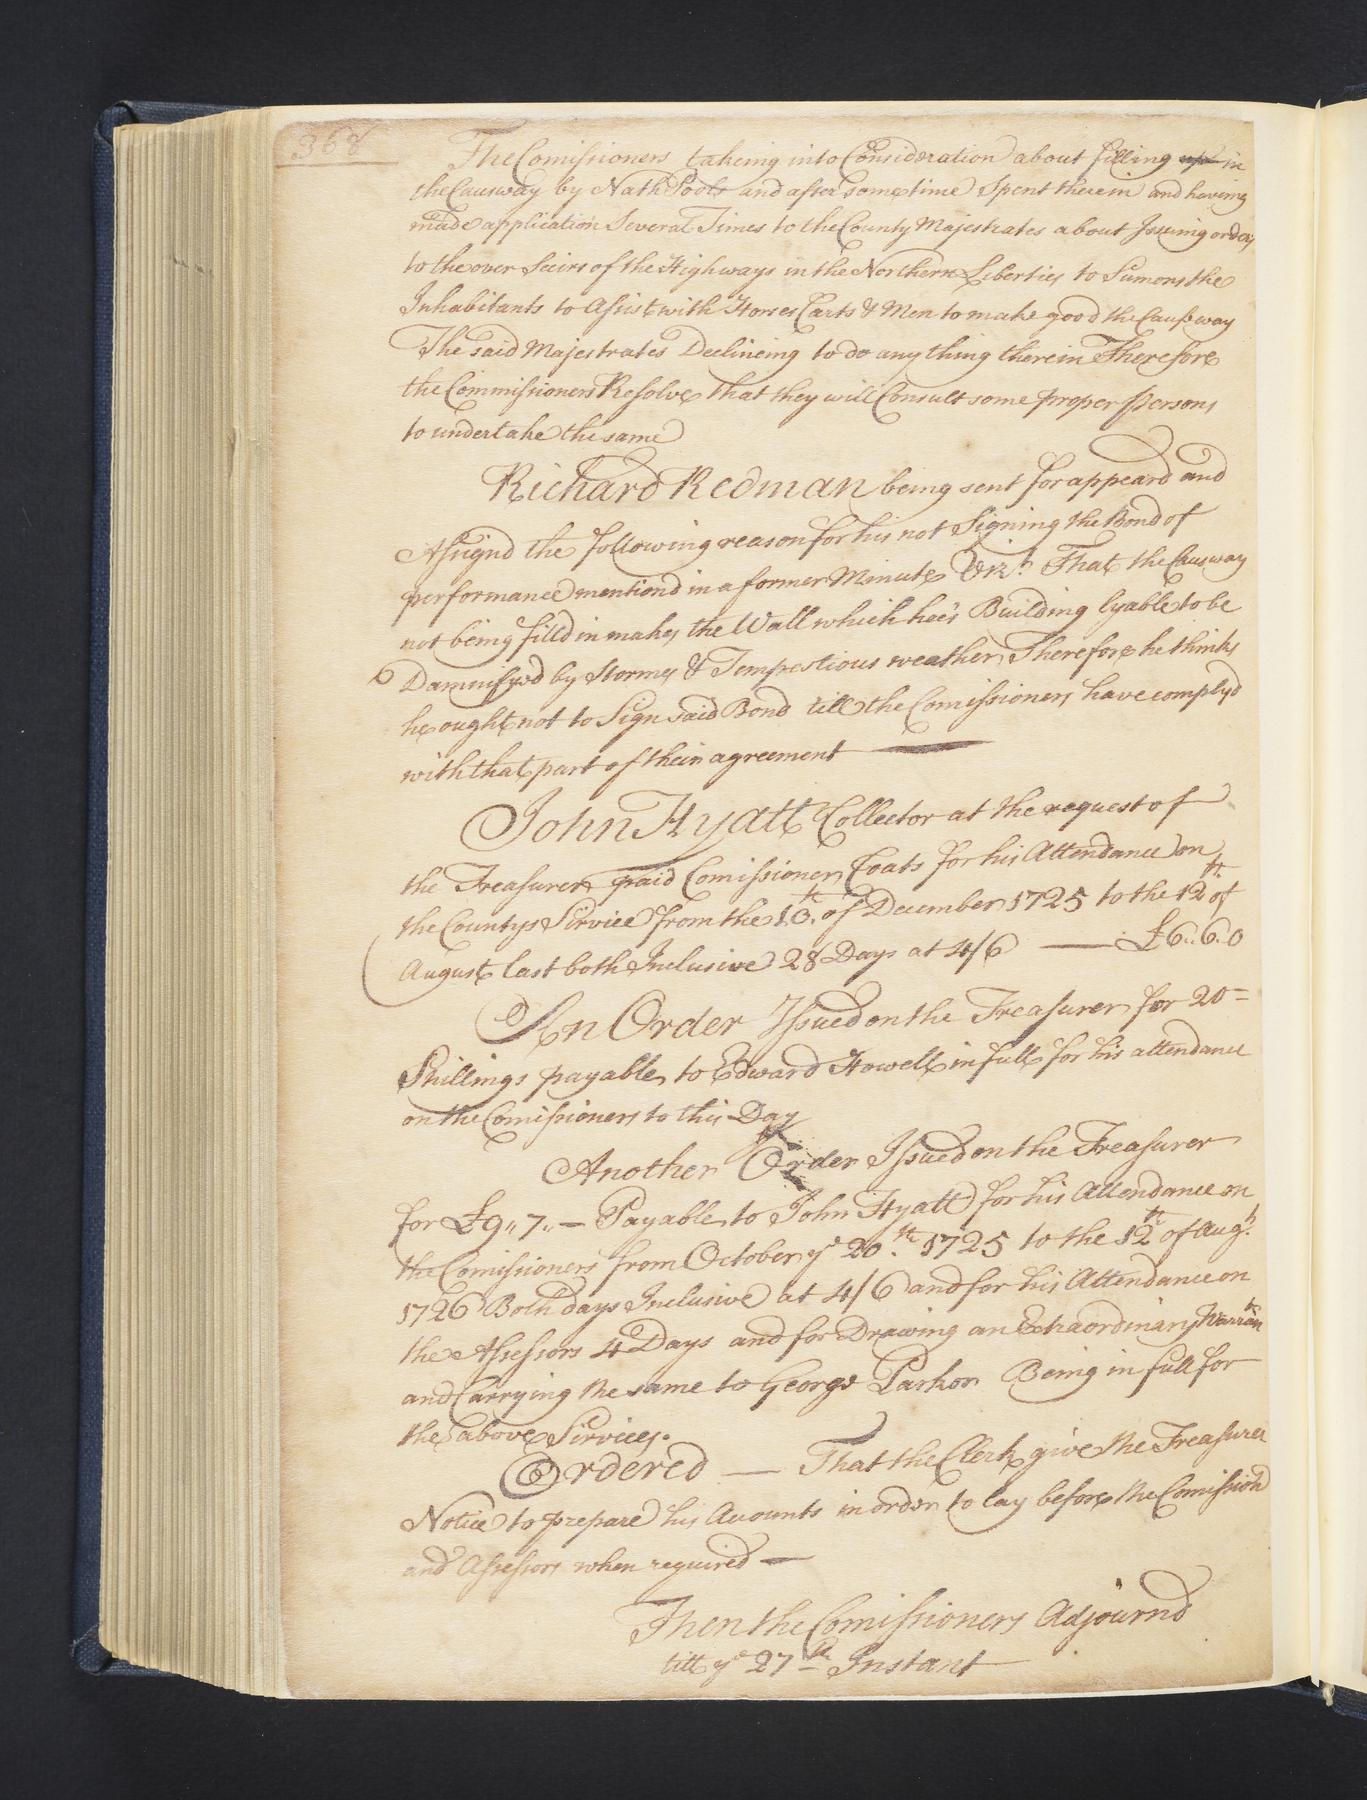 368
The Comissioners takeing into Consideration about filling up in
the Causway by Nath Pools and after some time Spent therein and haveing
made application Several Times to the County Majestrates about Issueing orders
to the over Seeirs of the Highways in the Northern Liberties to Sumons the
Inhabitants to Assist with Horses Carts & Men to make good the Causway
The said Majestrates Declineing to do any thing therein Therefore
the Commissioners Resolve that they will Consult some proper Persons
to undertake the same
Richard Redman being sent for appeard and
Assignd the following reason for his not Signing the Bond of
performance mentiond in a former Minute Vizt. That the Causway
not being filld in makes the Wall which hee's Building lyable to be
Damnifyed by Stormes & Tempestious weather, Therefore he thinks
he ought not to Sign said Bond till the Comissioners have complyd
with that part of their agreement
John Hyatt Collector at the request of
the Treasurer paid Comissioner Coats for his Attendance on
the Countys Service from the 10th. of December 1725 to the 12th of
August last both Inclusive 28 Days at 4/6 — £6..6.0
An Order Issued on the Treasurer for 20=
Shillings payable to Edward Howell in full for his attendance
on the Comissioners to this Day
Another Order Issued on the Treasurer
for £9,, 7,, — Payable to John Hyatt for his Attendance on
the Comissioners from October ye 20th. 1725 to the 12th of Augt.
1726 Both days Inclusive at 4/6 and for his Attendance on
the Assessors 4 Days and for Drawing an Extraordinary Warrant
and Carrying the same to George Parker Being in full for
the above Services.
Ordered — That the Clerk give the Treasurer
Notice to prepare his Accounts in order to lay before the Comissionrs
and Assessors when required —
Then the Comissioners Adjournd
till ye 27th Instant